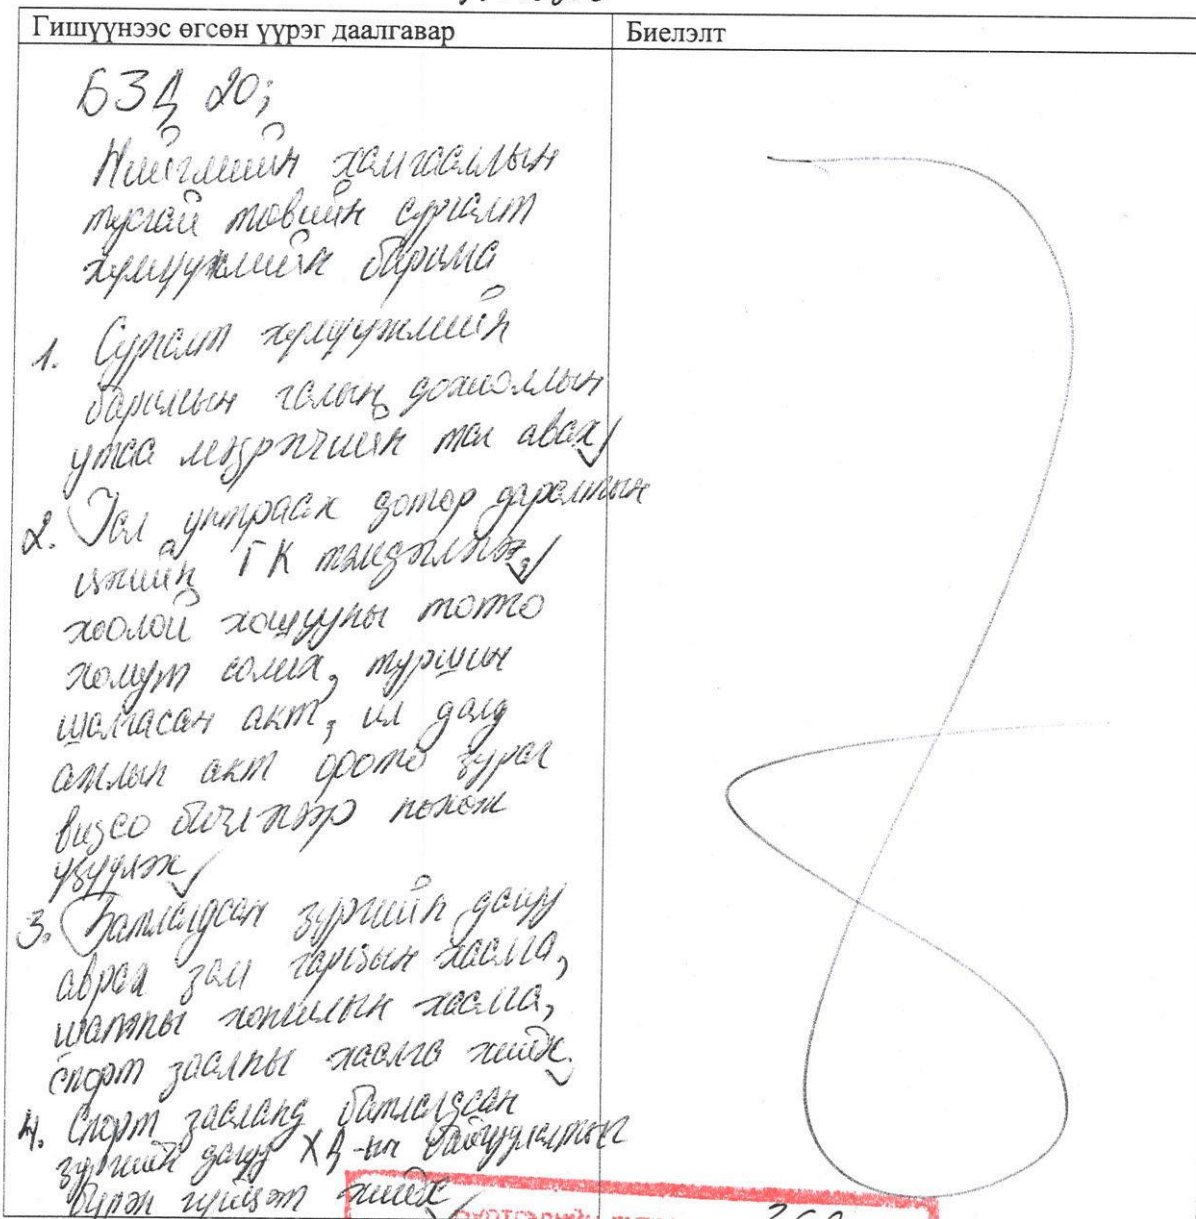 Гишүүнээс өгсөн үүрэг даалгавар
Биелэлт
БЗД 20;
Нийгмийн хамгааллын
тусгай төвийн сургалт
хүмүүжлийн барилга
1. Сургалт хүмүүжлийн
барилгын галын дохиоллын
утаа мэдрэгчийн тал авах
2. Гал унтраах дотор даралтын
цэгийн ГК тэмдэглэгээ,
хоолой хошууны тотго
хомут солих, туршин
шалгасан акт, ил далд
ажлын акт орото зураг
видео бичлэгээр нөхөж
үзүүлэх
3. Батлагдсан зургийн дагуу
аврах зам гарцын хаалга,
шатны хонгилын хаалга,
спорт заалны хаалга хийх.
4. Спорт зааланд батлагдсан
зургийн дагуу ХД-ын байгууламжийг
бүрэн гүйцэт хийх